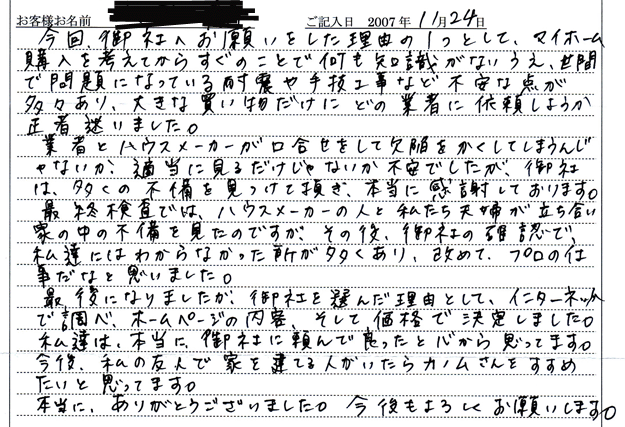 お客様お名前 ご記入日 2007年 11月24日
今回、御社へお願いをした理由の1つとして、マイホーム
購入を考えてからすぐのことで何も知識がないうえ、世間
で問題になっている耐震や手抜工事など不安な点が
多々あり、大きな買い物だけにどの業者に依頼しようか
正直迷いました。
業者とハウスメーカーが口合せをして欠陥をかくしてしまうんじ
ゃないか、適当に見るだけじゃないか不安でしたが、御社
は、多くの不備を見つけて頂き、本当に感謝しております。
最終検査では、ハウスメーカーの人と私たち夫婦が立ち合い
家の中の不備を見たのですが、その後、御社の確認で、
私達にはわからなかった所が多くあり、改めて、プロの仕
事だなと思いました。
最後になりましたが、御社を選んだ理由として、インターネット
で調べ、ホームページの内容、そして価格で決定しました。
私達は、本当に、御社に頼んで良ったと心から思ってます。
今後、私の友人で家を建てる人がいたらカノムさんをすすめ
たいと思ってます。
本当に、ありがとうございました。今後もよろしくお願いします。